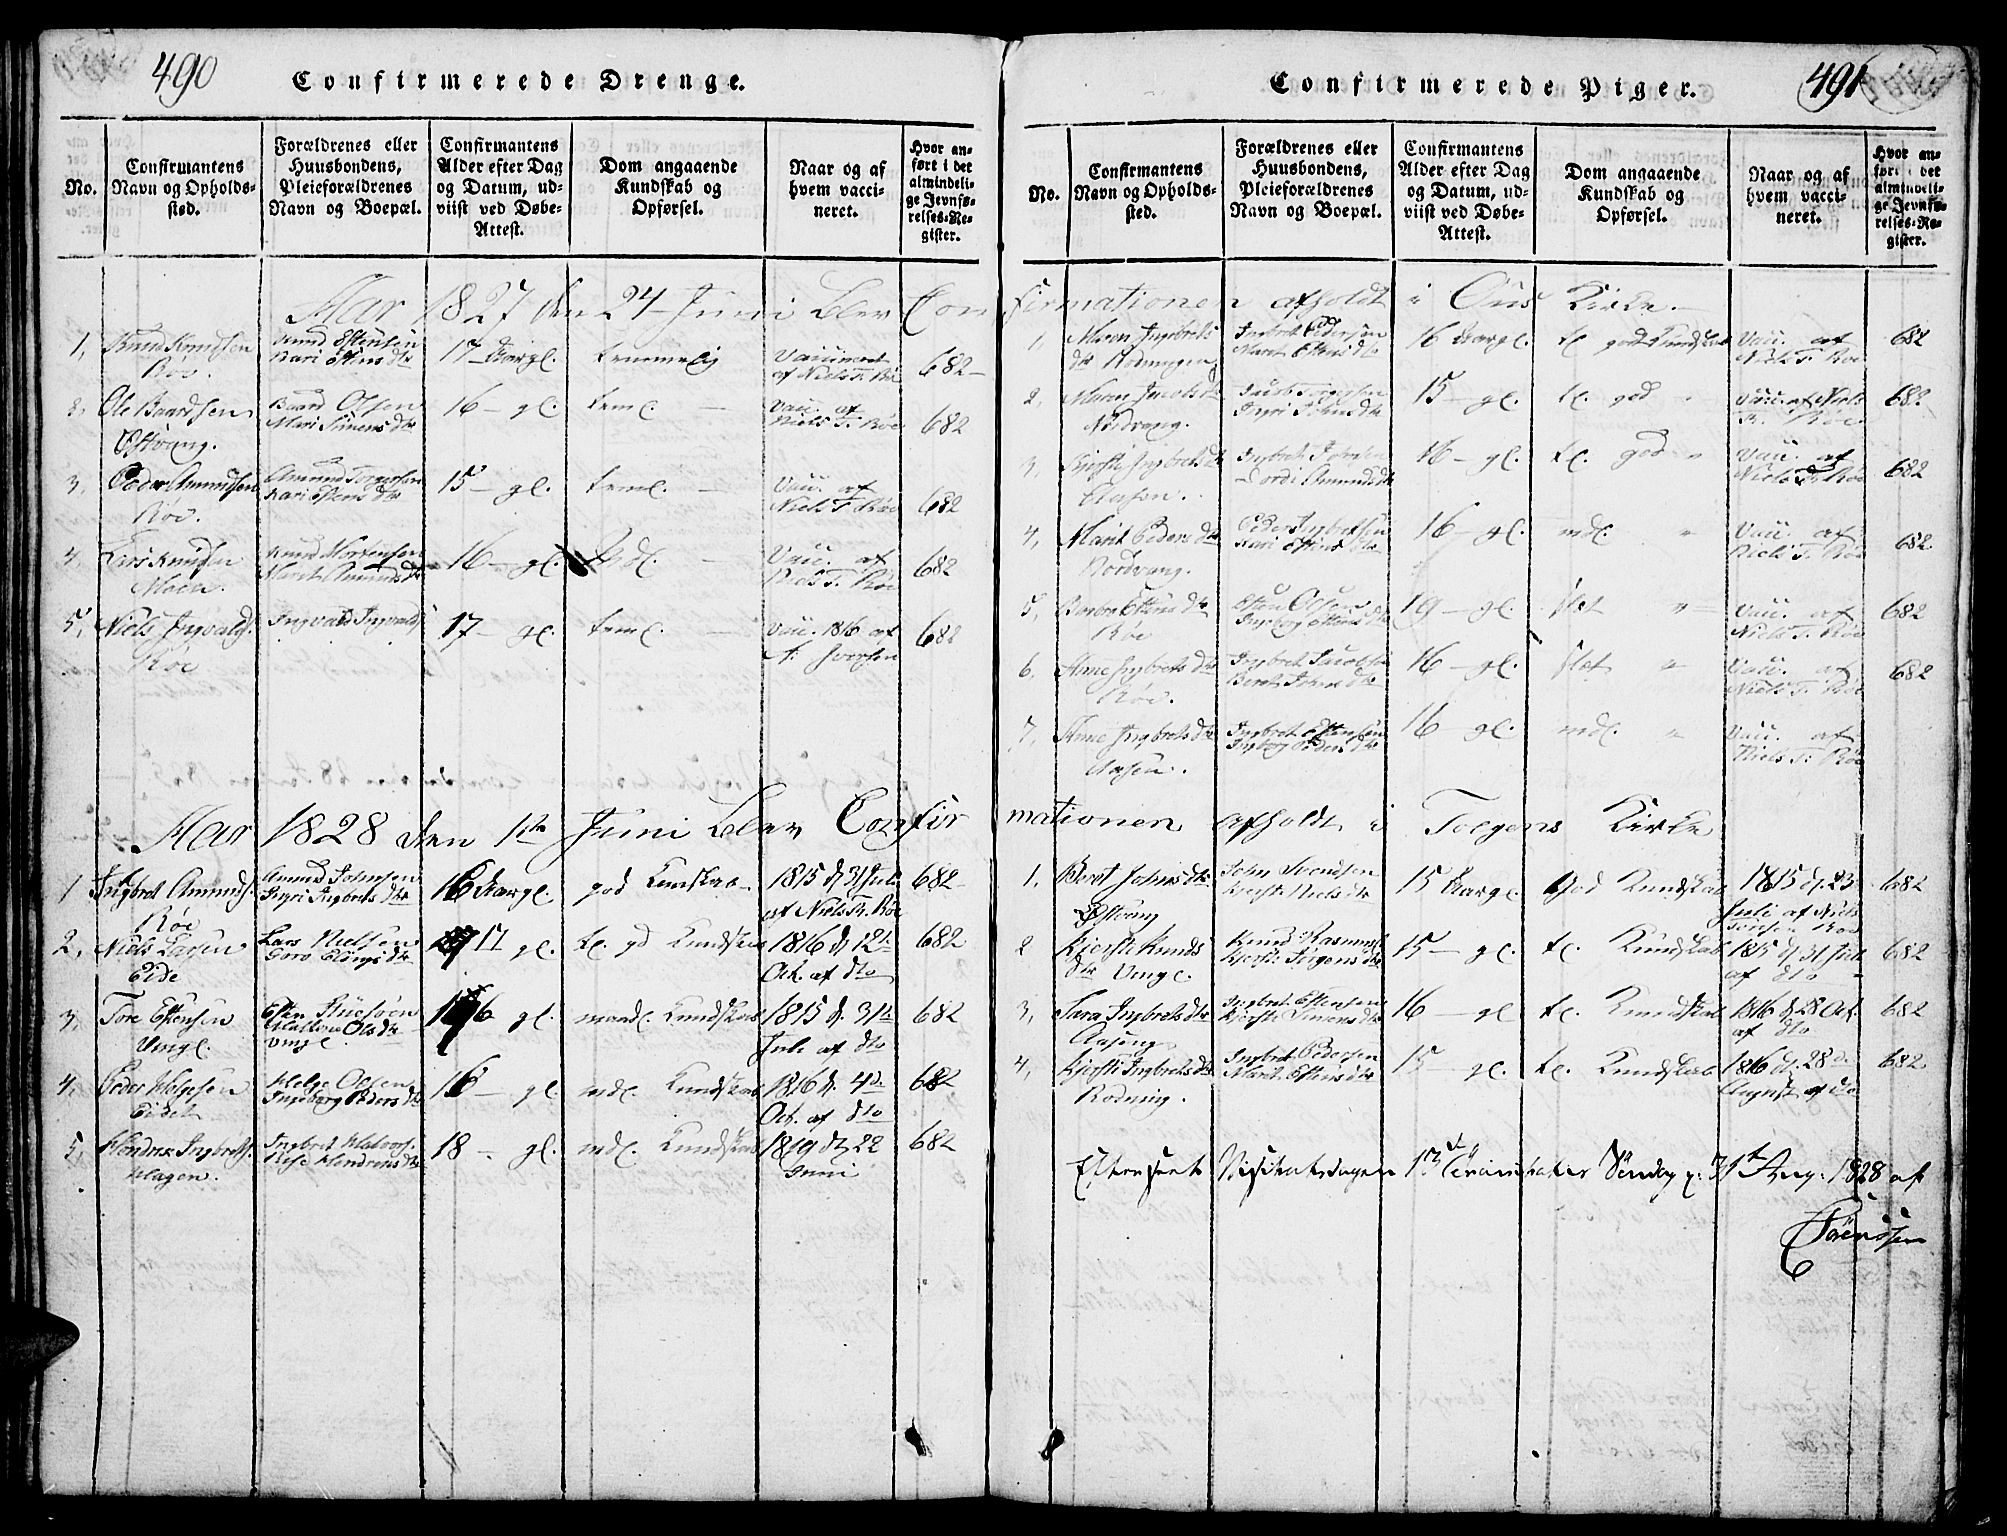 490
Confirmerede Drenge.
No.
Confirmantens Navn og Opholds-
sted.
Forældrenes eller
Huusbondens,
Pleieforældrenes
Navn og Boepæl.
Confirmantens
Alder efter Dag
og Datum, ud-
viist ved Døbe-
Attest.
Dom angaaende
Kundskab og
Opførsel.
Naar og af
hvem vacci-
neret.
Hvor an-
ført i det
almindeli-
ge Jevnfø-
relses-Re-
gister.
Aar 1827 den 24 Juni blev Con
1, Knud Knudsen Roe. Knud Estensen Kari Estens dtr 17 Aar gl. temmelig Vaccineret af Niels T. Røe 682
2, Ole Baardsen Østvang. Baard Olsen Mari Simens dtr 16 - gl. teml. Vacc. af Niels T. Røe 682
3, Peder Amundsen Roe. Amund Torgersen Kari Estens dtr 15 - gl. teml. Vacc. af Niels T. Røe 682
4, Lars Knudsen Moen. Knud Mortensen Maret Amunds dtr 16 - gl. Vacc. af Niels T. Røe 682
5, Niels Ingvalds. Røe Ingvald Ingvalds. 17 - gl. teml. Vacc. 1816 af Iversen 682
Aar 1828 den 1ste Juni blev Confir
1 Ingbret Amunds. Røe Amund Johnsen Ingri Ingbrets dtr 16 Aar gl. god Kundskab 1815 d. 31 Juli af Niels Tr. Røe 682
2, Niels Larsen Eide Lars Nielsen Goro dtr 17 gl. tl. gd Kundskab 1816 d. 12te Oct. af dto 682
3, Tore Estensen Vingl. Esten Olsdtr Vingl. 16 gl. maadl. Kundskab 1815 d. 31te Juli af dto 682
4, Peder Helgesen Eidet Helge Olsen Ingeborg Peders dtr 16 - gl. mdl. Kundskab 1816 d. 4de Oct. af dto 682
5, Hendrik Ingbrets. Hagen. Ingbret Halvors. Hendriks dtr 18 - gl. mdl. Kundskab 1819 d. 22 Juni 682
491
Confirmerede Piger.
No.
Confirmantens
Navn og Opholds-
sted.
Forældrenes eller
Huusbondens,
Pleieforældrenes
Navn og Boepæl.
Confirmantens
Alder efter Dag
og Datum, ud-
viist ved Døbe-
Attest.
Dom angaaende
Kundskab og
Opførsel.
Naar og af
hvem vacci-
neret.
Hvor an-
ført i det
almindeli-
ge Jevnfø-
relses-Re-
gister.
firmationen afholdt i Ous Kirke.
1, Maren Ingbrets dtr Rodningen Ingbret Pedersen Maret Estens dtr 16 Aar gl. tl. god Kundskab Vacc. af Niels T. Røe 682
2, Maren Jacobs dtr Nordvang. Jacob Ingri Johns dtr 15 - gl. tl. god Vacc. af Niels T. Røe 682
3, Kjersti Ingbrets dtr Aasen. Ingbret Johnsen Dordi Amunds dtr 16 - gl. tl. god Vacc. af Niels T. Røe 682
4, Marit Peders dtr Nordvang. Peder Ingbretsen Kari Estens dtr 16 - gl. mdl. Vacc. af Niels T. Røe 682
5, Estens dtr Røe Esten Olsen Ingborg Estens dtr 19 - gl. slet Vacc. af Niels T. Røe 682
6, Anne Ingbrets dtr Røe. Ingbret Jacobsen Beret Johns dtr 16 - gl. slet Vacc. af Niels T. Røe 682
7, Anne Ingbrets dtr Aasen. Ingbret Estensen Ingborg dtr 16 - gl. mdl. Vacc. af Niels T. Røe
mationen afholdt i Tolgens Kirke
1, Beret Johns dtr Østvang John Svendsen Kjersti Niels dtr 15 Aar gl. god Kundskab 1815 d. 23 Juli af Niels Røe 682
2 Kjersti Knuds dtr Vingl. Knud Rasmuss. Kjersti dtr 15 - gl. tl. Kundskab 1815 d. 31 Juli af dto 682
3, Sara Ingbrets dtr Aaseng Ingbret Estensen Kjersti Simens dtr 16 - gl tl. Kundskab 1816 d. 28 Oct. af dto 682
4, Kjersti Ingbrets dtr Rodning. Ingbret Pedersen Maret Estens dtr 15 - gl. tl. Kundskab 1816 d. 28de August af dto 682
Efterseet Visitatsdagen 13de Trinitatis Søndag d. 31te Aug. 1828 af
Sørenssen